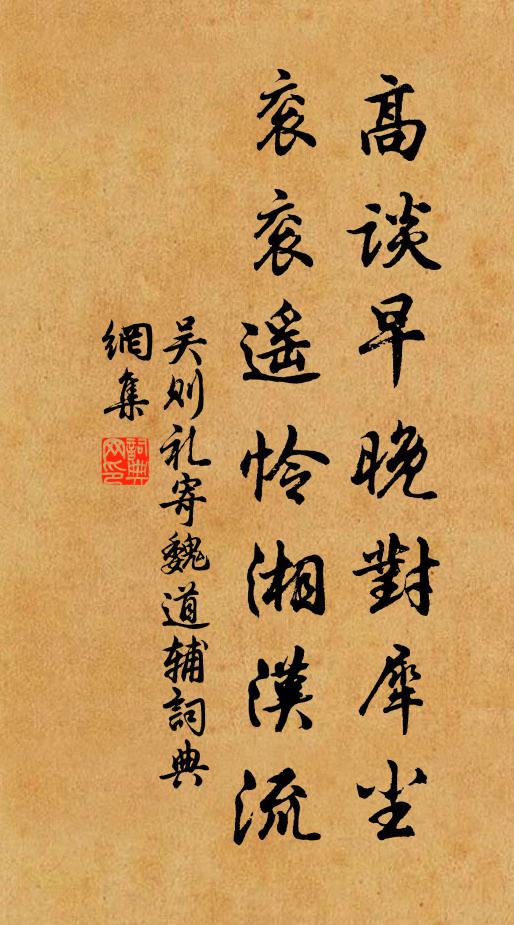 高谈早晚對犀尘
衮衮遥怜湘漢流
吴则礼寄魏道辅詞典
網集
詞典网印